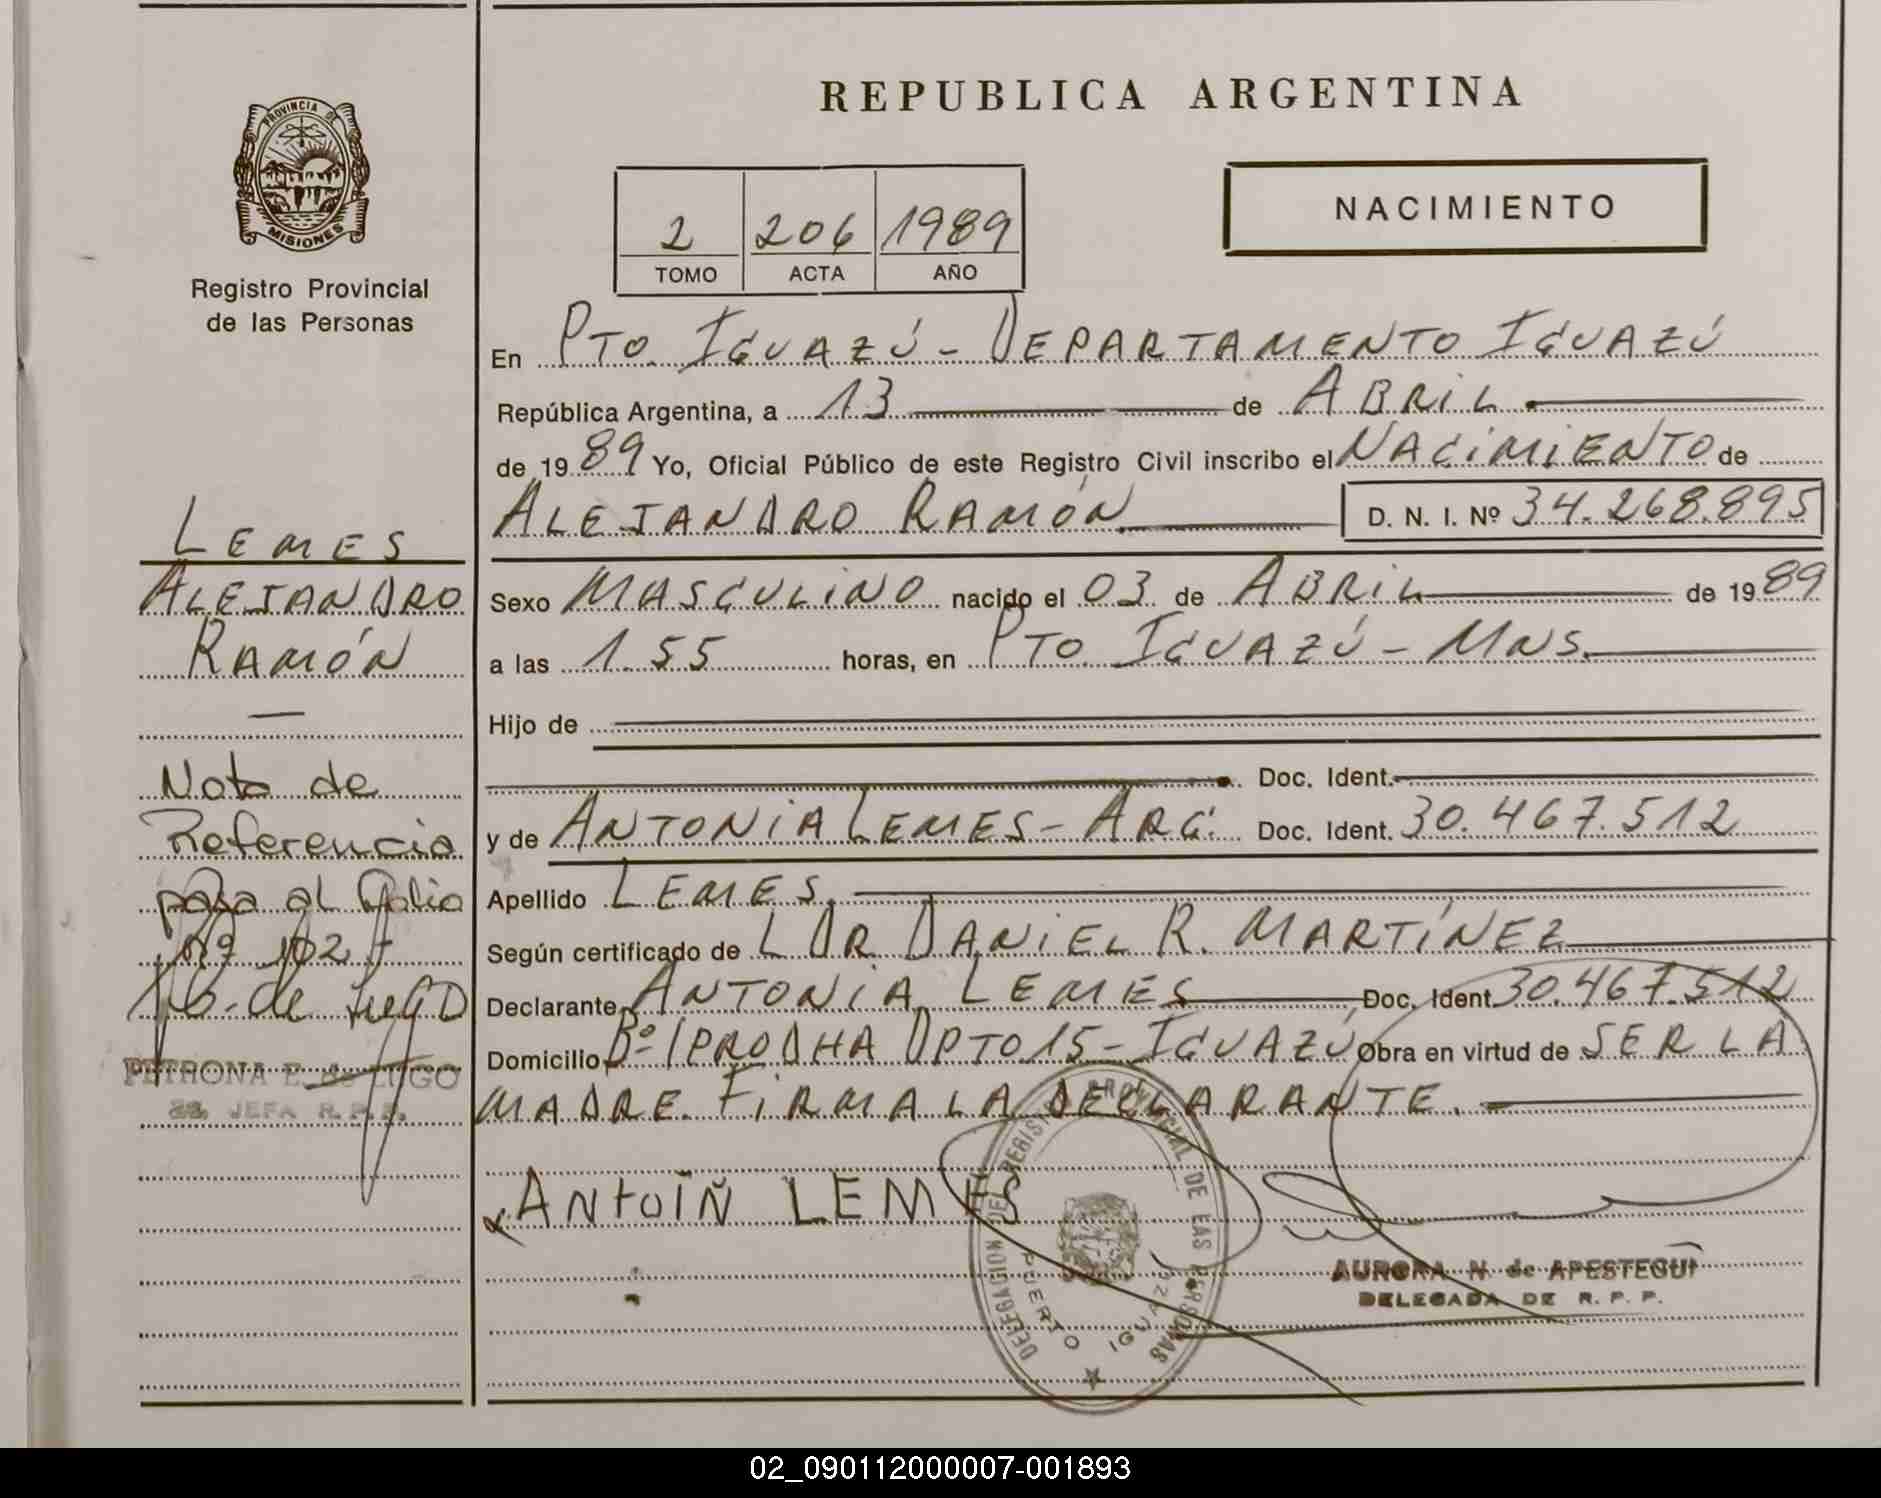 REPUBLICA ARGENTINA
PROVINCIA DE
MISIONES
Registro Provincial
de las Personas
2 206 1989
TOMO ACTA AÑO
NACIMIENTO
En PTO. IGUAZÚ - DEPARTAMENTO IGUAZÚ
República Argentina, a 13 de ABRIL
de 1989 Yo, Oficial Público de este Registro Civil inscribo el NACIMIENTO de
ALEJANDRO RAMÓN D. N. I. Nº 34.268.895
Sexo MASCULINO nacido el 03 de ABRIL de 1989
a las 1.55 horas, en PTO. IGUAZÚ - MNS.
Hijo de
Doc. Ident.
y de ANTONIA LEMES - ARG. Doc. Ident. 30.467.512
Apellido LEMES.
Según certificado de L DR DANIEL R. MARTÍNEZ
Declarante ANTONIA LEMES Doc. Ident. 30.467.512
Domicilio Bº IPRODHA DPTO 15 - IGUAZÚ Obra en virtud de SER LA
MADRE. FIRMA LA DECLARANTE.
ANtoiÑ LEMES
DELEGACION DEL REGISTRO PROVINCIAL DE LAS PERSONAS
PUERTO IGUAZU
AURORA N. de APESTEGUI
DELEGADA DE R. P. P.
LEMES
ALEJANDRO
RAMÓN
Nota de
Referencia
pasa al folio
Nº 102
de Lugo
PETRONA E. de LUGO
JEFA R. P. P.
02_090112000007-001893